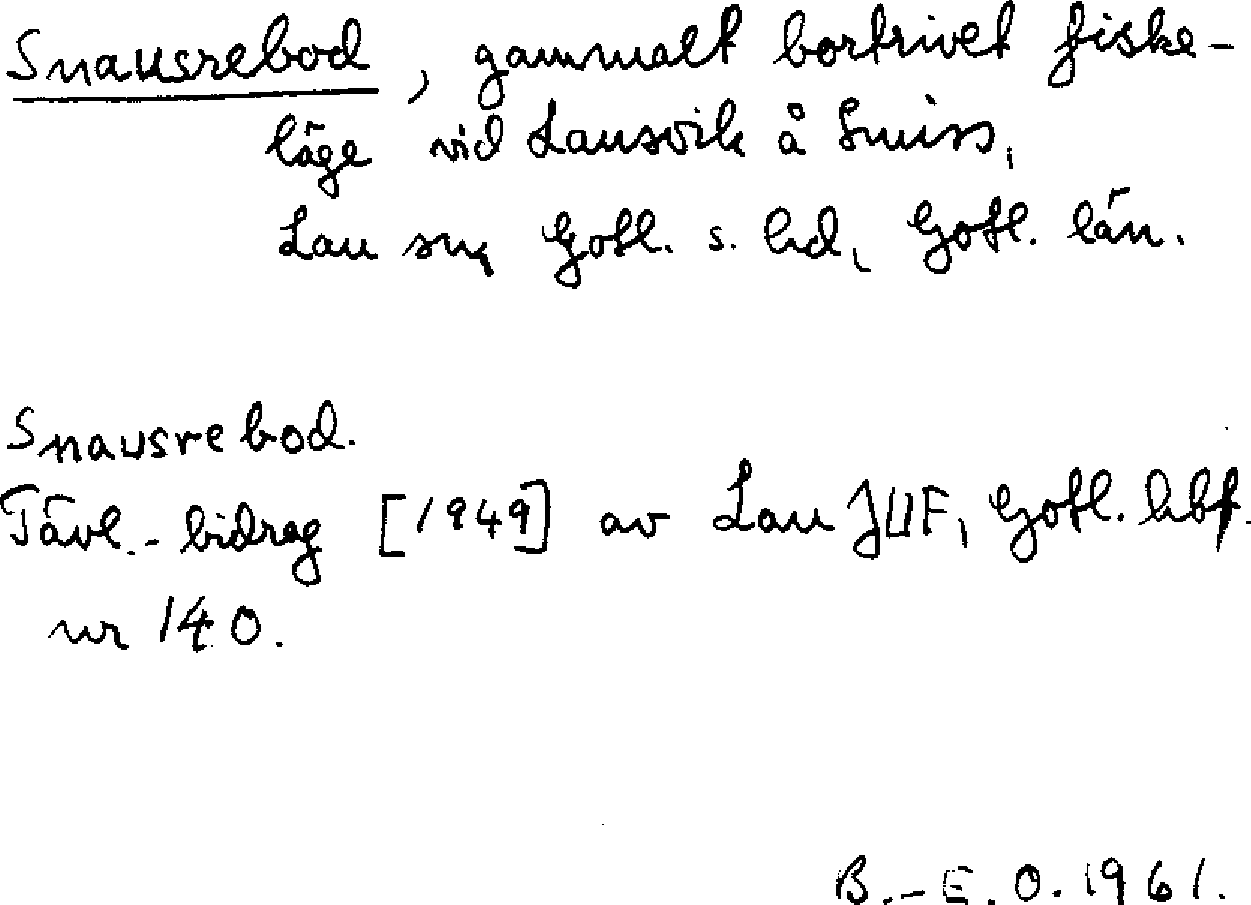 Snausrebod, gammalt bortrivet fiske-
läge vid Lausvik å Smiss,
Lau sn, Gotl. s. hd, Gotl. län.
Snausrebod.
Tävl.-bidrag [1949] av Lau JUF, Gotl. hbf.
nr 140.
B.-E. O. 1961.